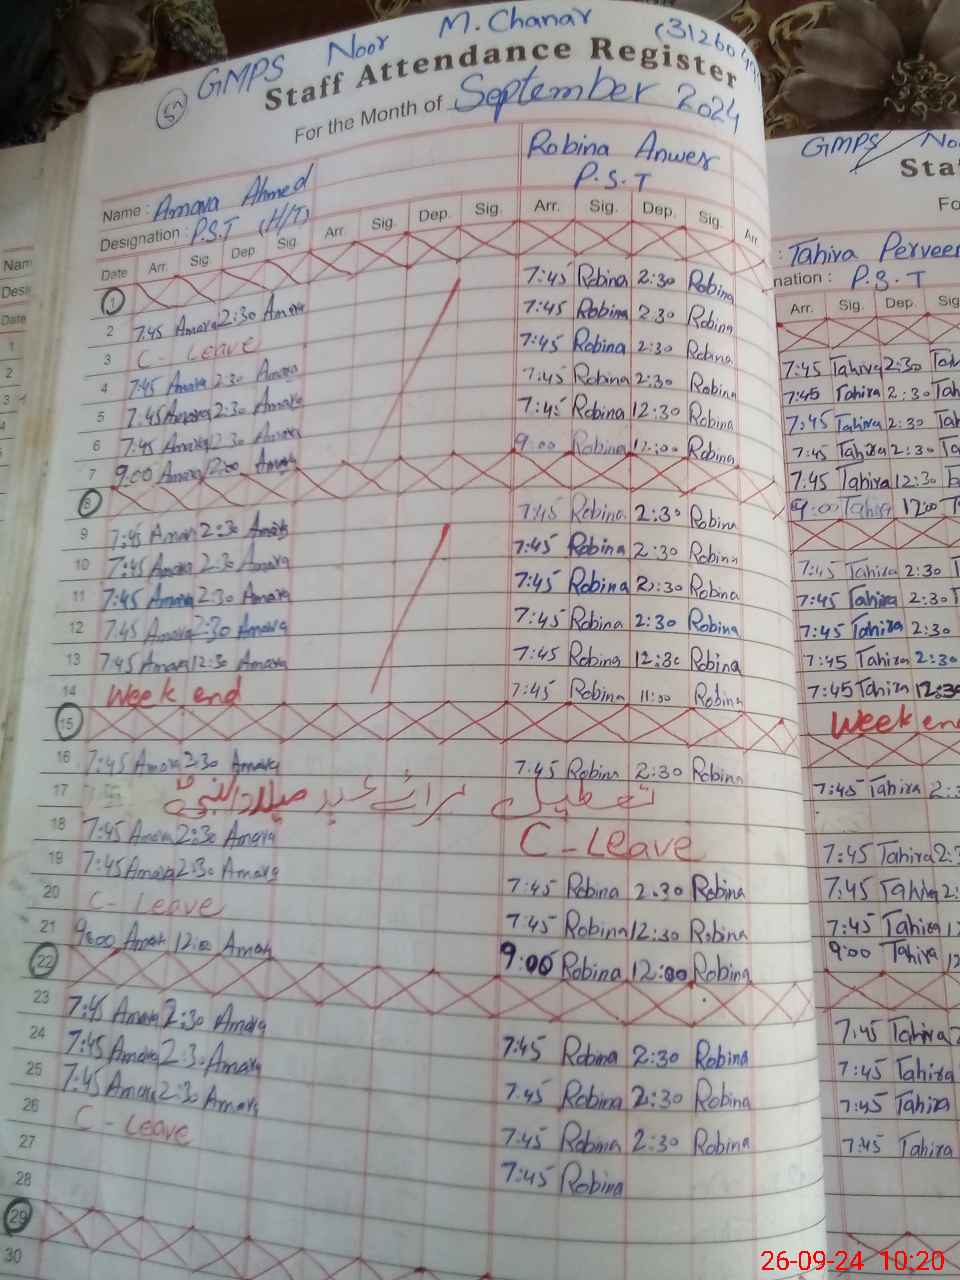 GMPS Noor M. Chanar
57
Staff Attendance Register
For the Month of September 2024
Name : Amara Ahmed
Designation : P.S.T (H/T)
Robina Anwer
P.S.T
Date Arr. Sig. Dep Sig. Arr. Sig. Dep. Sig. Arr. Sig. Dep. Sig. Arr
1
2 7:45 Amara 2:30 Amara 7:45 Robina 2:30 Robina
3 C- Leave 7:45 Robina 2:30 Robina
4 7:45 Amara 2:30 Amara 7:45 Robina 2:30 Robina
5 7:45 Amara 2:30 Amara 7:45 Robina 2:30 Robina
6 7:45 Amara 12:30 Amara 7:45 Robina 12:30 Robina
7 9:00 Amara 12:00 Amara 9:00 Robina 12:00 Robina
8
9 7:45 Amara 2:30 Amara 7:45 Robina 2:30 Robina
10 7:45 Amara 2:30 Amara 7:45 Robina 2:30 Robina
11 7:45 Amara 2:30 Amara 7:45 Robina 2:30 Robina
12 7:45 Amara 2:30 Amara 7:45 Robina 2:30 Robina
13 7:45 Amara 12:30 Amara 7:45 Robina 12:30 Robina
14 Week end 7:45 Robina 11:00 Robina
15
16 7:45 Amara 2:30 Amara 7:45 Robina 2:30 Robina
17 تعطیل برائے عید میلاد النبیؐ
18 7:45 Amara 2:30 Amara C-Leave
19 7:45 Amara 2:30 Amara 7:45 Robina 2:30 Robina
20 C- Leave 7:45 Robina 12:30 Robina
21 9:00 Amara 12:00 Amara 9:00 Robina 12:00 Robina
22
23 7:45 Amara 2:30 Amara 7:45 Robina 2:30 Robina
24 7:45 Amara 2:30 Amara 7:45 Robina 2:30 Robina
25 7:45 Amara 2:30 Amara 7:45 Robina 2:30 Robina
26 C - Leave 7:45 Robina
27
28
29
30
GMPS
Sta
Fo
: Tahira Perveen
nation : P.S.T
Arr. Sig. Dep. Sig
7:45 Tahira 2:30
7:45 Tahira 2:30
7:45 Tahira 2:30
7:45 Tahira 2:30
7:45 Tahira 12:30
9:00 Tahira 12:00
7:45 Tahira 2:30
7:45 Tahira 2:30
7:45 Tahira 2:30
7:45 Tahira 2:30
7:45 Tahira 12:30
Week end
7:45 Tahira
7:45 Tahira
7:45 Tahira
7:45 Tahira
9:00 Tahira
7:45 Tahira
7:45 Tahira
7:45 Tahira
7:45 Tahira
Nam
Desi
Date
1
2
3
26-09-24 10:20